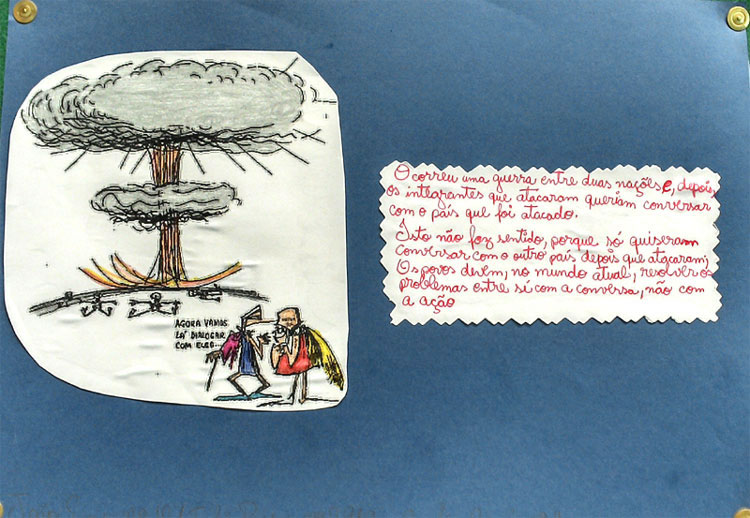 AGORA VAMOS
LÁ DIALOGAR
COM ELES...
Ocorreu uma guerra entre duas nações e, depois,
os integrantes que atacaram queriam conversar
com o país que foi atacado.
Isto não faz sentido, porque só quiseram
conversar com o outro país depois que atacaram;
Os povos devem, no mundo atual, resolver os
problemas entre si com a conversa, não com
a ação